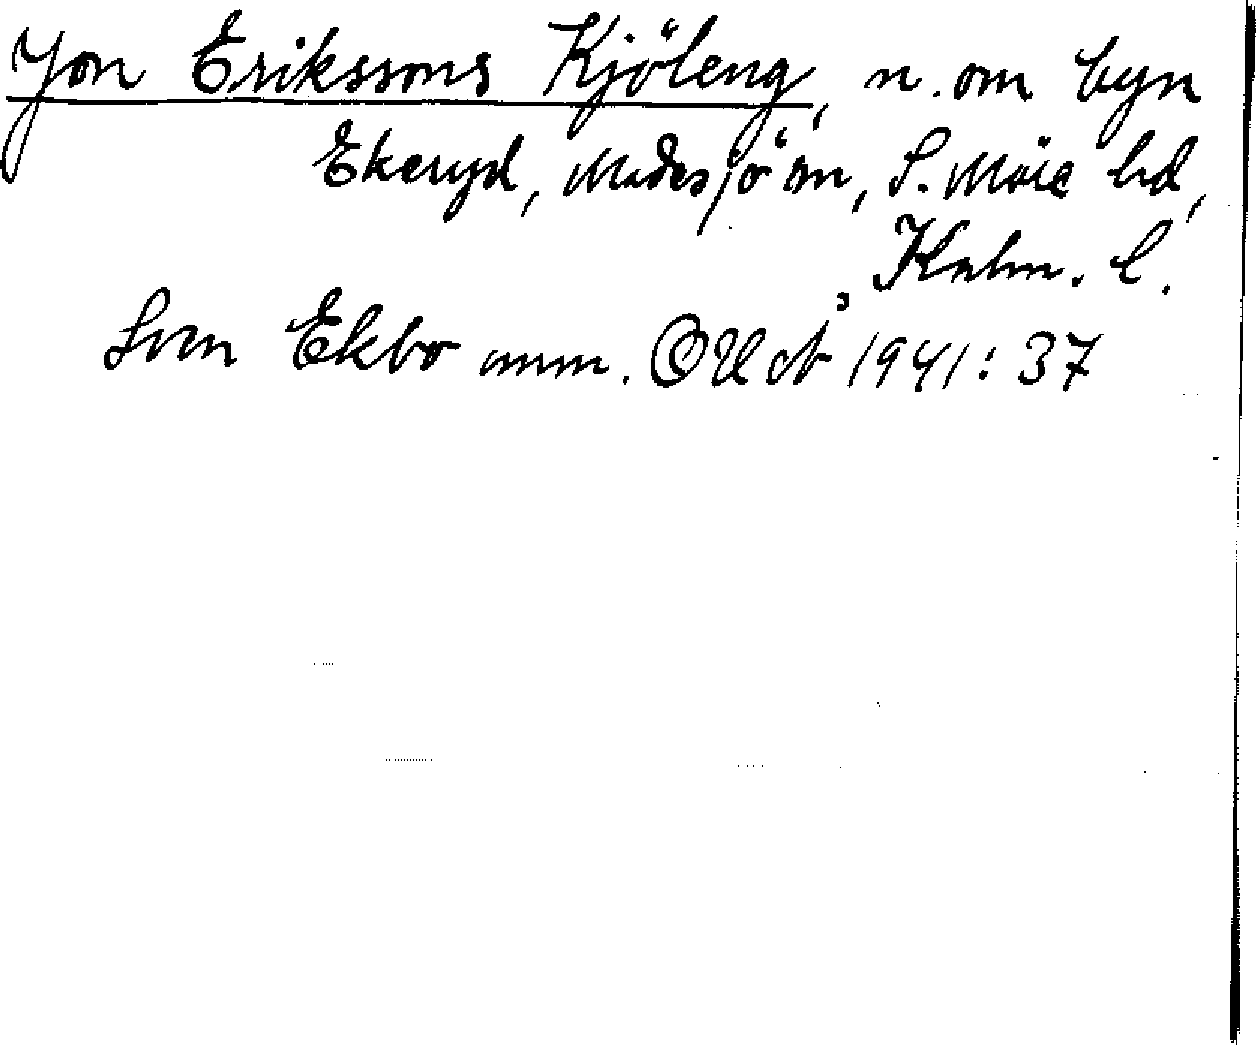 Jon Erikssons Kjöleng, n. om byn
Ekeryd, Madesjö sn, S. Möre hd,
Kalm. l.
Sven Ekbo mm. OUÅ 1941: 37